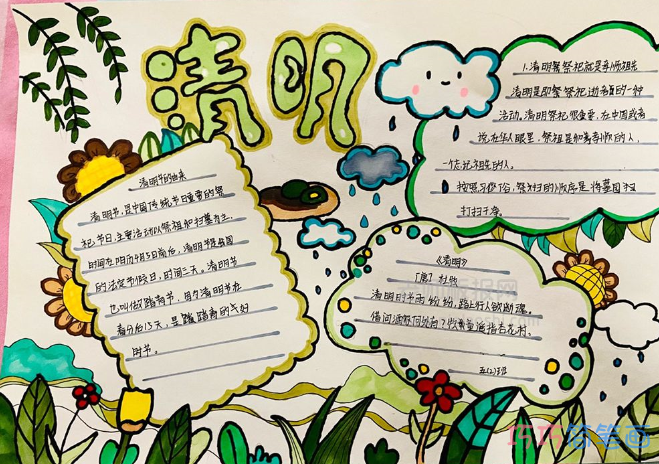 清明
清明节的由来
清明节,是中国传统节日重要的祭
祀节日,主要活动以祭祖和扫墓为主.
时间在阳历4月5日前后,清明节是我国
的法定节假日,时间三天。清明节
也叫做踏青节,因为清明节在
春分后15天,是踏青的大好
时节。
1.清明祭祀就是孝顺祖先
清明是即祭祭祀逝者的一种
活动,清明祭祀很重要,在中国或者
说在华人眼里,祭祖是和孝顺的人,
一个忘记祖先的人。
按照习俗,祭扫的顺序是将墓园
打扫干净。
《清明》
[唐]杜牧
清明时节雨纷纷,路上行人欲断魂。
借问酒家何处有?牧童遥指杏花村.
五(2)班
巧巧简笔画